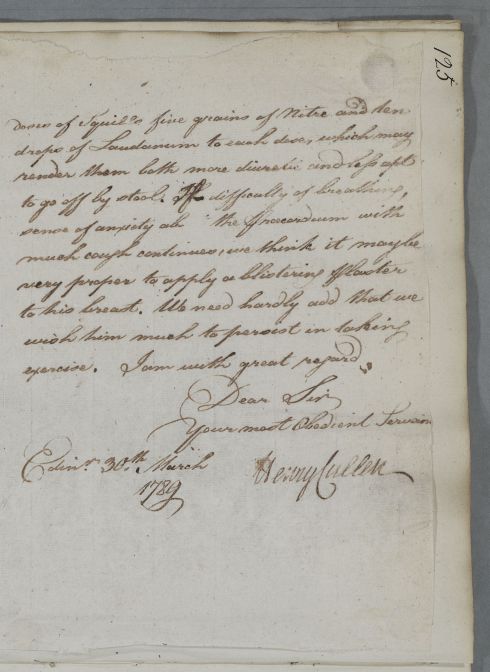 125
doses of Squills five grains of Nitre and ten
drops of Laudanum to each dose, which may
render them both more diuretic and less apt
to go off by stool. If difficulty of breathing,
sense of anxiety ab the Præcordium with
much cough continues, we think it may be
very proper to apply a blistering plaster
to his breast. We need hardly add that we
wish him much to persist in taking
exercise. I am with great regard
Dear Sir
Your most Obedient Servant
Edinr. 30th. March
1789
Henry Cullen